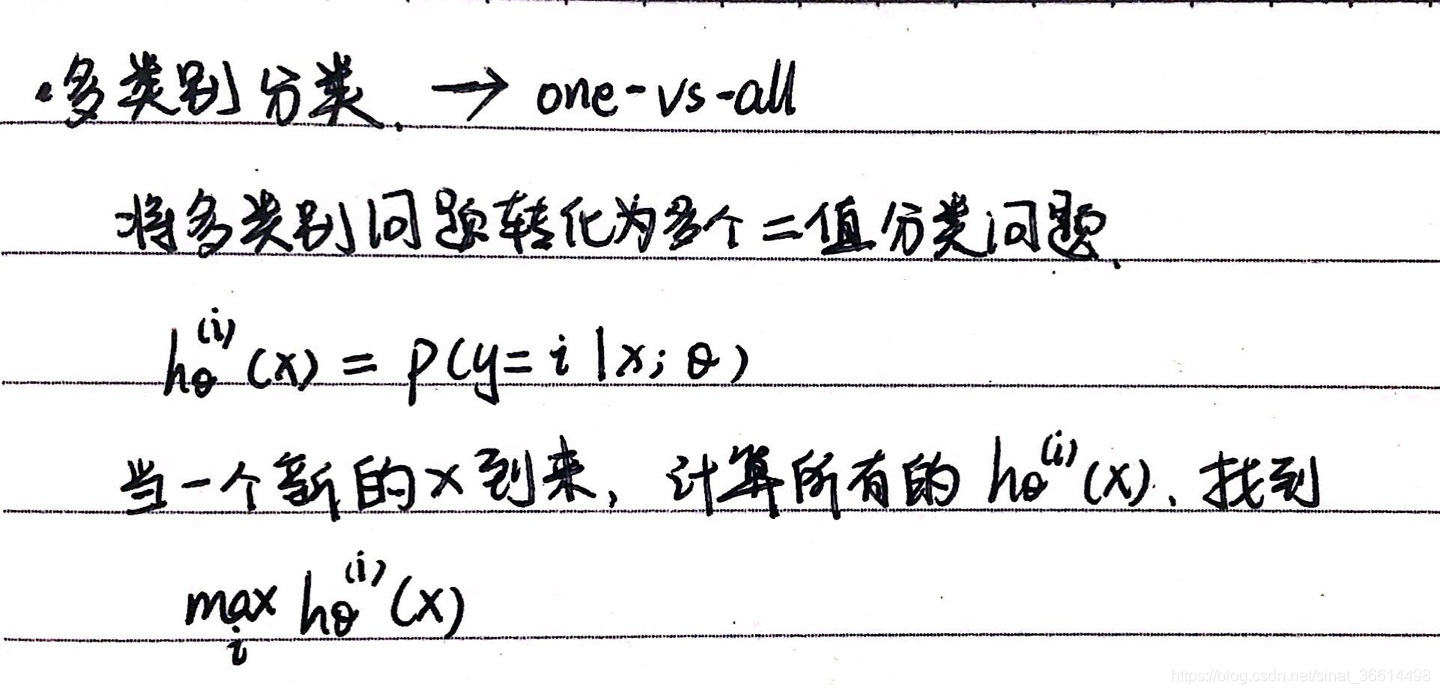 ·多类别分类. → one-vs-all
将多类别问题转化为多个二值分类问题.
hθ⁽ⁱ⁾(x) = P(y=i|x;θ)
当一个新的x到来, 计算所有的 hθ⁽ⁱ⁾(x). 找到
max hθ⁽ⁱ⁾(x)
i
https://blog.csdn.net/sinat_36614498